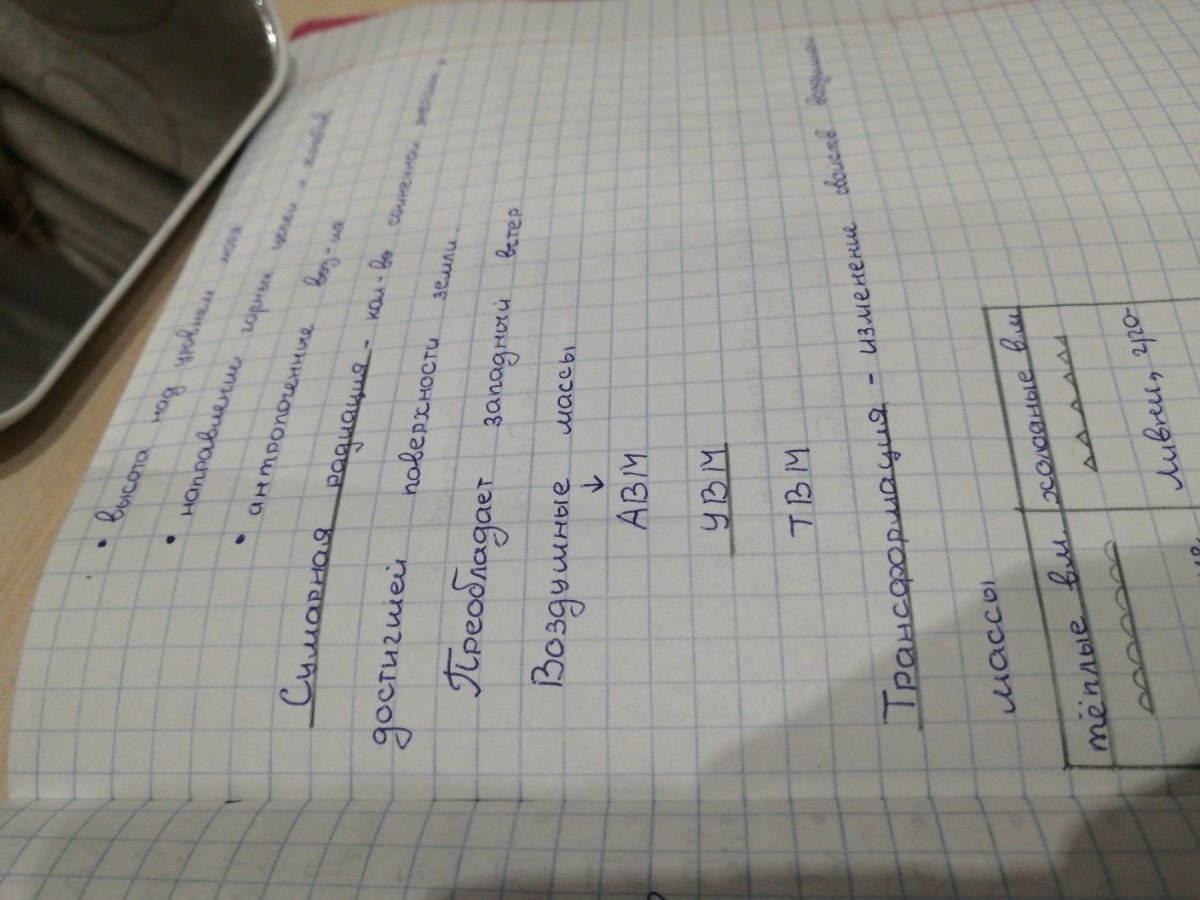 • высота над уровнем моря
• направление горных цепей и хребтов
• антропогенные воз-ия
Сумарная радиация - кол-во солнечной энергии,
достигшей поверхности земли.
Преобладает западный ветер
Воздушные массы
↓
АВМ
УВМ
ТВМ
Трансформация - изменение свойств воздушн
массы
тёплые вм холодные вм
ливни, гро-